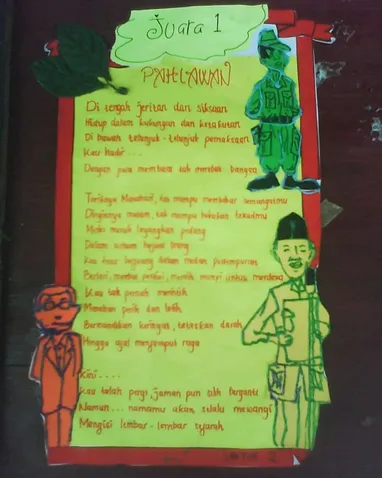 Juara 1
PAHLAWAN
Di tengah jeritan dan siksaan
Hidup dalam kurungan dan ketakutan
Di bawah telunjuk - telunjuk pemaksaan
Kau hadir ....
Dengan jiwa membara tak merelai bangsa
Teriknya Matahari, tak mampu membakar semangatmu
Dinginnya malam, tak mampu bekukan tekadmu
Meski musuh layangkan pedang
Dalam perang
Kau terus berjuang dalam medan pertempuran
Berlari, untuk merdeka
Kau tak pernah merintih
Menahan perih dan letih
Bermandikan keringat, teteskan darah
Hingga ajal menjemput raga
Kini ....
Kau telah pergi, jaman pun tlah berganti
Namun ... namamu akan selalu mewangi
Mengisi lembar - lembar sejarah